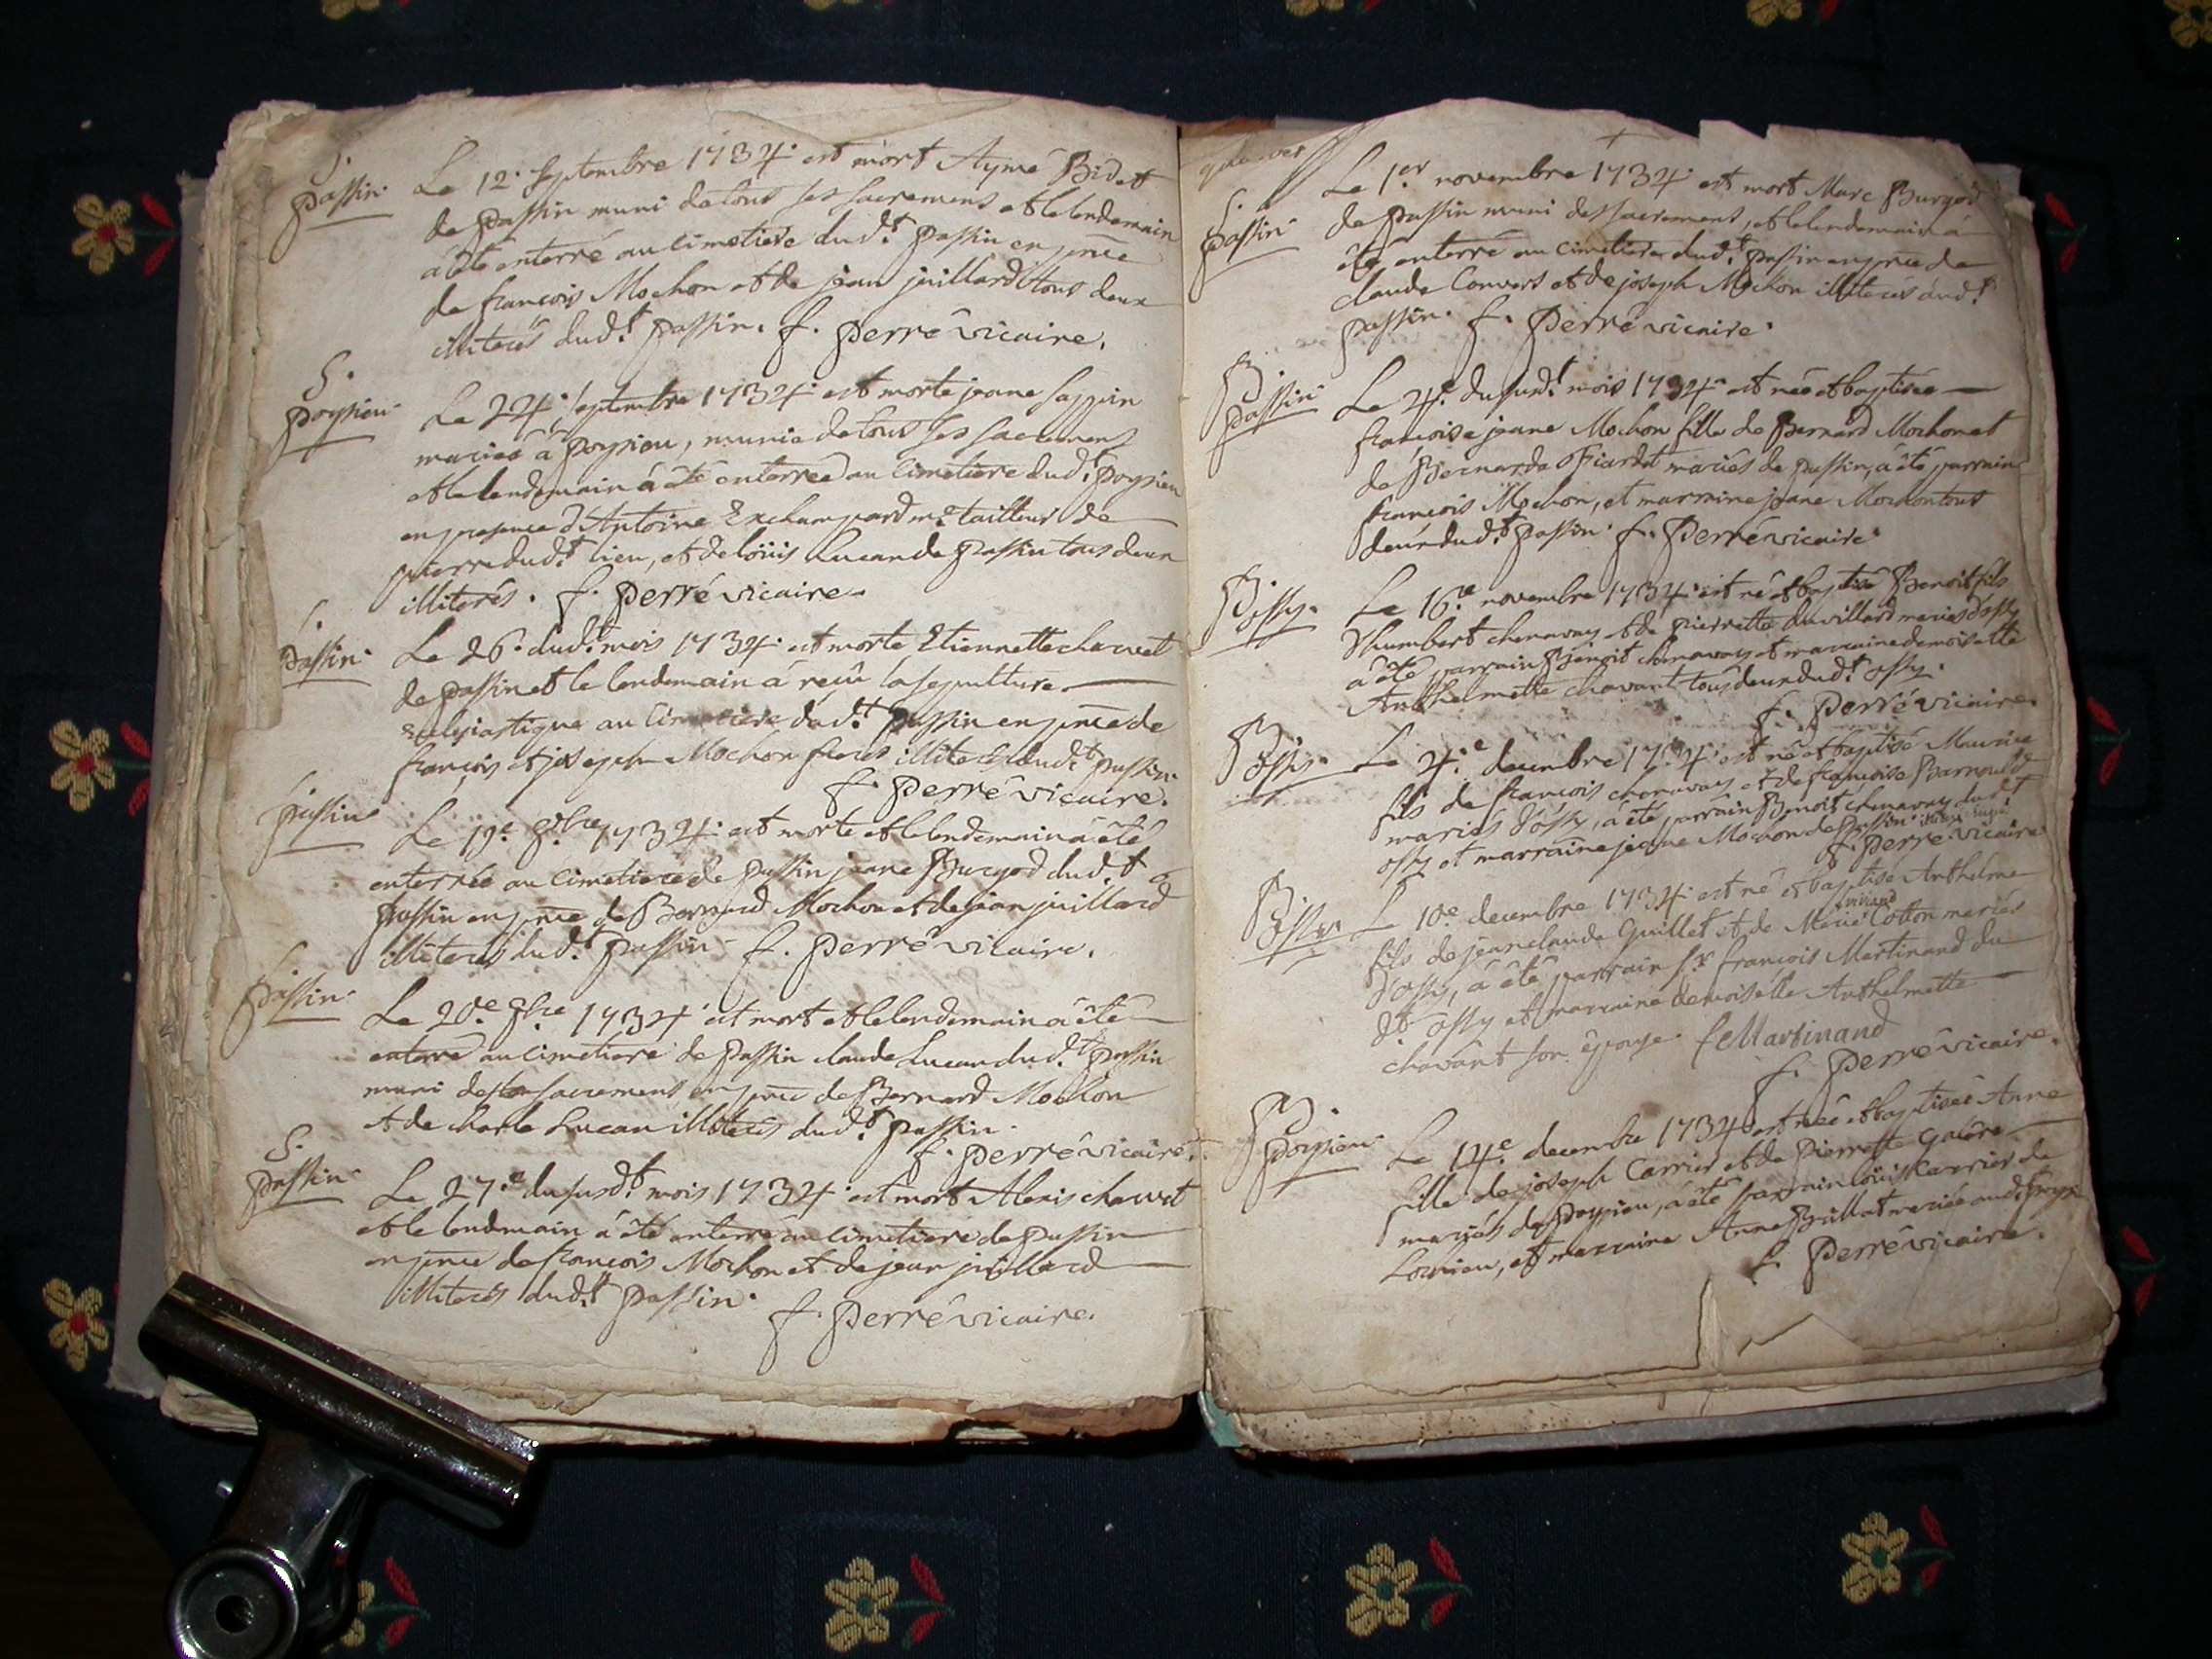 S.
passin.
Le 12. septembre 1734. est mort Aymé Bidet
de passin muni de tous ses sacrements et le lendemain
à été enterré au cimetiere dud.t passin en pnce
de francois Mochon et de jean juillard tous deux
illiterés dud.t passin. f. perré vicaire.
S.
poysieu.
Le 24. septembre 1734. est morte jeane sappin
mariée à poysieu, munie de tous ses sacrements
et le lendemain à été enterrée au cimetiere dud.t poysieu
en presence d'Antoine Exchampard m.e tailleur de
pierre dud.t lieu, et de loüis Lucan de passin tous deux
illiterés. f. perré vicaire.
S.
passin.
Le 26. dud.t mois 1734. est morte Etiennette chavet
de passin et le lendemain à reçû la sepulture
Eclesiastique au cimetiere dud.t passin en pnce de
francois et joseph Mochon freres illiterés dud.t passin.
f. perré vicaire.
passin
Le 19.e 8bre 1734. est morte et le lendemain à été
enterrée au cimetiere de passin jeane Burgod dud.t
passin en pnce de Bernard Mochon et de jean juillard
illiterés dud.t passin. f. perré vicaire.
S.
passin.
Le 20.e 8bre 1734 est mort et le lendemain à été
enterré au cimetiere de passin claude Lucan dud.t passin
muni des sacrements en pnce de Bernard Mochon
et de charle Lucan illiterés dud.t passin.
f. perré vicaire.
S.
passin.
Le 27.e du susd.t mois 1734. est mort Alexis chavet
et le lendemain à été enterré au cimetiere de passin
en pnce de francois Mochon et de jean juillard
illiterés dud.t passin.
f. perré vicaire.
S.
passin
Le 1.er novembre 1734. est mort Marc Burgod
de passin muni des sacrements, et le lendemain à
été enterré au cimetiere dud.t passin en pnce de
claude Convers et de joseph Mochon illiterés dud.t
passin. f. perré vicaire.
B.
passin
Le 4.e du susd.t mois 1734. est née et baptisée
francoise jeane Mochon fille de Bernard Mochon et
de Bernarde Fiardet mariés de passin, à été parrain
francois Mochon, et marraine jeane Mochon tous
deux dud.t passin. f. perré vicaire.
B.
ossy.
Le 16.e novembre 1734. est né et baptisé Benoit fils
d'humbert chenavay et de pierrette duvillard mariés d'ossy
à été parrain Benoit chenavay et marraine demoiselle
Anthelmette chavant tous deux dud.t ossy.
f. perré vicaire.
B.
ossy.
Le 4.e decembre 1734. est né et baptisé Maurice
fils de francois chenavay et de francoise Barnoud
mariés d'ossy, à été parrain Benoit chenavay dud.t
ossy et marraine jeane Mochon de passin.
f. perré vicaire
B.
ossy.
Le 10.e decembre 1734. est né et baptisé Anthelme
fils de jean claude Guillet et de Marie Cotton mariés
d'ossy, à été parrain s.r francois Martinand du
d.t ossy et marraine demoiselle Anthelmette
chavant son épouse f Martinand
f. perré vicaire.
B.
poysieu.
Le 14.e decembre 1734 est née et baptisée Anne
fille de joseph Carrier et de pierrette
mariés de poysieu, à été parrain loüis Carrier de
et marraine Anne Brillat mariée aud.t
f. perré vicaire.